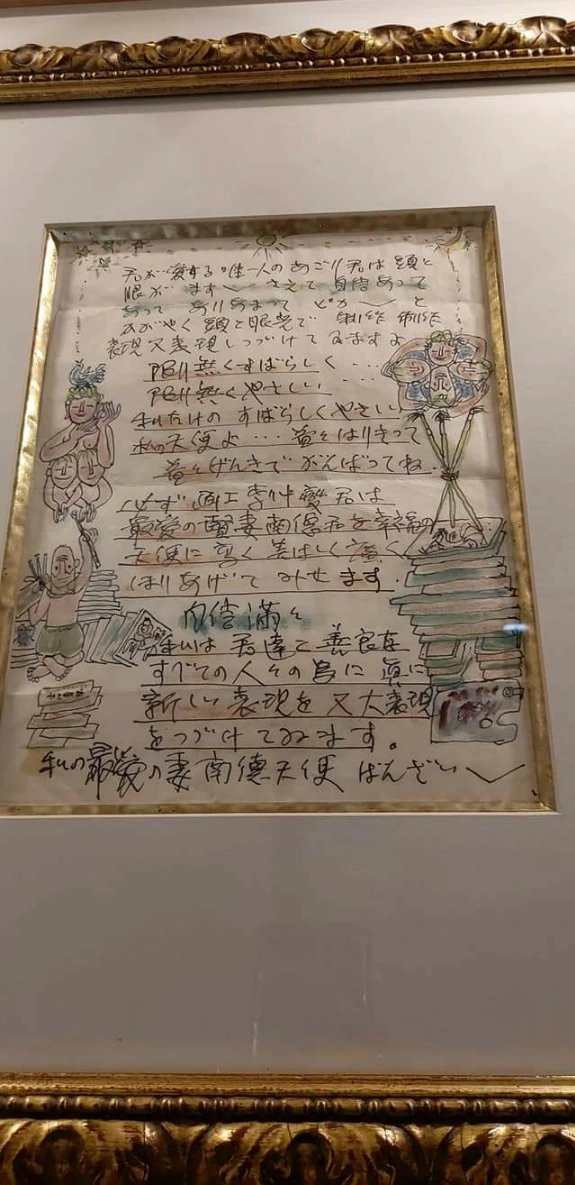 君が愛する唯一人のあごり君は頭と
眼がます〱さえて自信あって
あって ありあまって ピカ〱と
かがやく頭と眼光で 制作 制作
表現又表現しつづけてゐますよ
限り無くすばらしく・・・
限り無くやさしい
私だけの すばらしくやさしい
私の天使よ・・・益々はりきって
益々げんきでがんばってね
必ず 画工李仲燮君は
最愛の賢妻南德君を幸福の
天使に 高く 美しく 広く
ほりあげて みせます.
自信満々
私は君達と善良な
すべての人々の為に 真に
新しい表現を 又大表現
をつづけてゐます。
私の最愛の妻南德天使 ばんざい〱